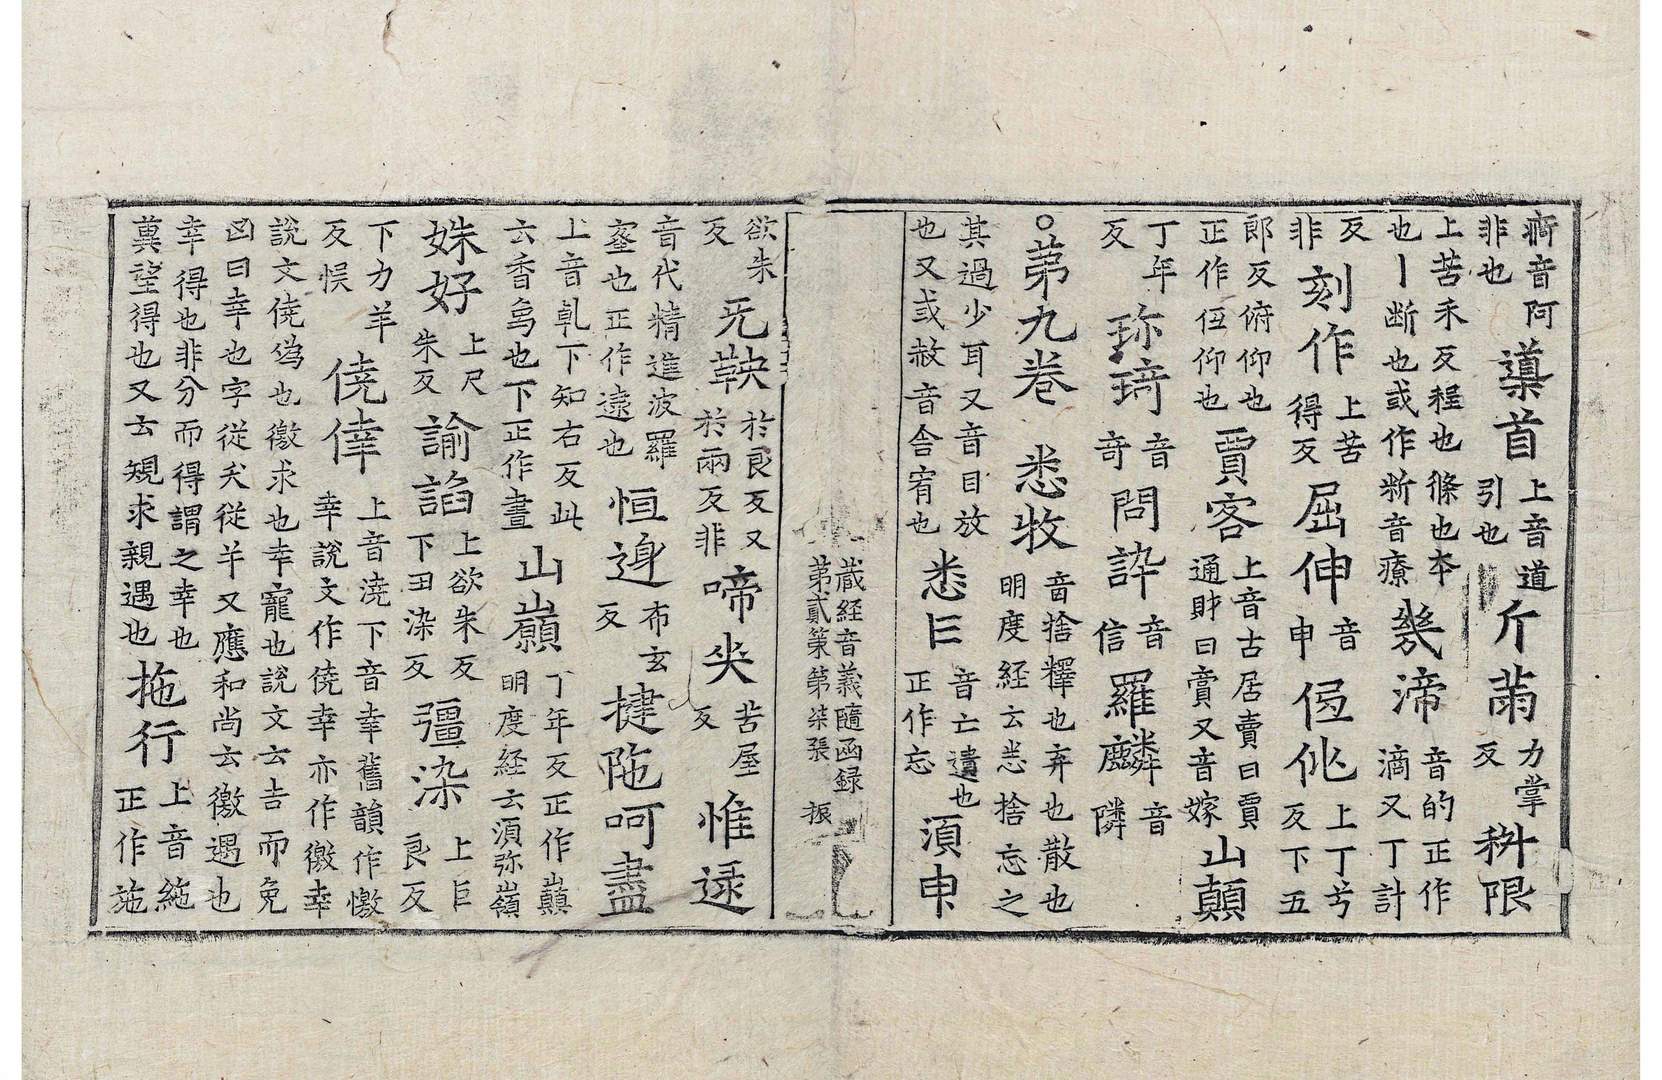 痾音阿 非也 導首 上音道 引也 斤䒳 力掌 反 秔限
上苦禾反程也條也本 也丨断也或作断音療 幾渧 音的正作 滴又丁計
反 非 刻作 上苦 得反 屈伸 音 申 伹佻 上丁兮 反下五
郎反俯仰也 正作仾仰也 賈客 上音古居賣曰賈 通財曰賣又音嫁 山顛
丁年 反 珎琦 音 奇 問訷 音 信 羅麟 音 隣
○第九卷 悉牧 音捨釋也弃也散也 明度経云悉捨忘之
其過少耳又音目放 也又或赦音舍宥也 悉㠯 音亡遺也 正作忘 湏申
蔵経音義隨函録 第貳筞 第柒張 振
欲朱 反 旡鞅 於良反又 於兩反非 啼㖠 苦屋 反 惟逯
音代精進波羅 蜜也正作遠也 恒邊 布玄 反 揵陁呵盡
上音乹下知右反此 云香鳥也下正作晝 山嶺 丁年反正作巔 明度経云湏弥嶺
姝好 上尺 朱反 諭諂 上欲朱反 下丑染反 彊染 上巨 良反
下力羊 反悮 僥倖 上音澆下音幸舊韻作憿 幸說文作僥幸亦作徼幸
說文僥偽也徼求也幸寵也說文云吉而免 凶曰幸也字從夭從羊又應和尚云徼遇也
幸得也非分而得謂之幸也 冀望得也又去規求親遇也 拖行 上音絁 正作施